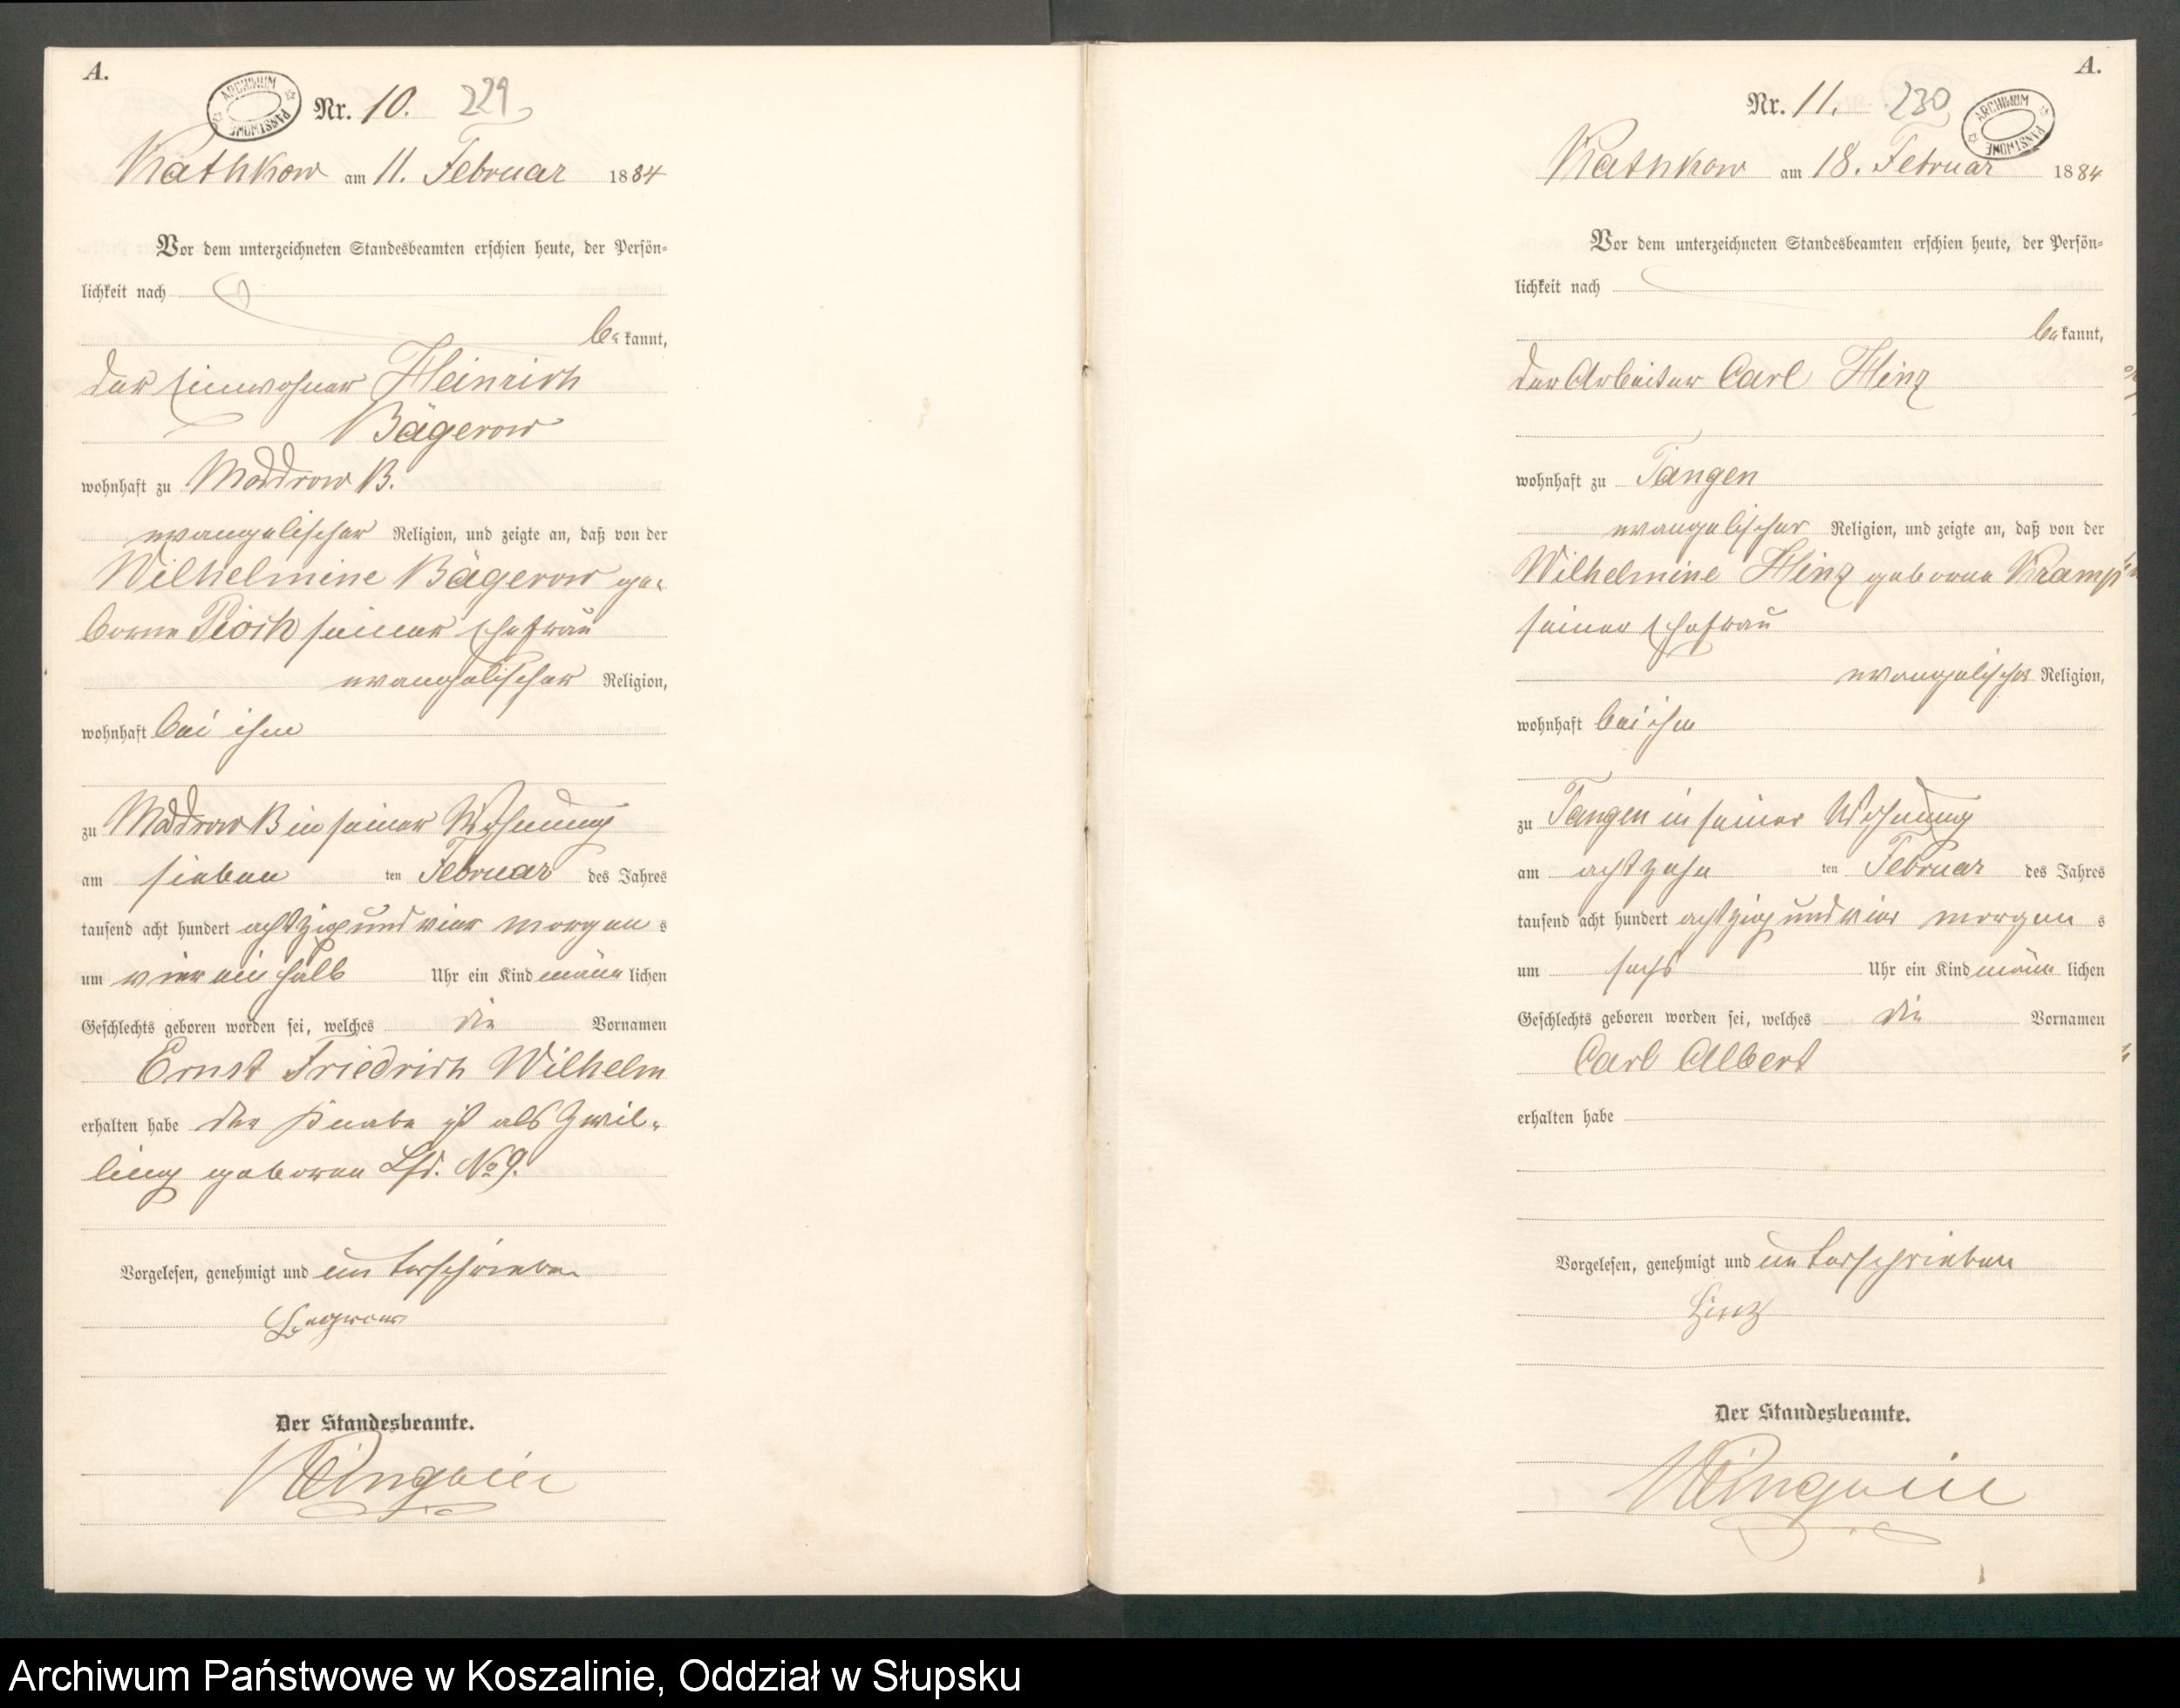 A.
ARCHIWUM PAŃSTWOWE
Nr. 10. 229
Rathkow am 11. Februar 1884
Vor dem unterzeichneten Standesbeamten erschien heute, der Persön=
lichkeit nach
be kannt,
der Einwohner Heinrich
Bägerow
wohnhaft zu Moddrow B.
evangelischer Religion, und zeigte an, daß von der
Wilhelmine Bägerow ge=
borne Pioch seiner Ehefrau
evangelischer Religion,
wohnhaft bei ihm
zu Moddrow B in seiner Wohnung
am sieben ten Februar des Jahres
tausend acht hundert achtzig und vier morgen s
um vier ein halb Uhr ein Kind männ lichen
Geschlechts geboren worden sei, welches die Vornamen
Ernst Friedrich Wilhelm
erhalten habe der Knabe ist als Zwil=
ling geboren Lfd. No 9.
Vorgelesen, genehmigt und unterschrieben
Der Standesbeamte.
A.
Nr. 11. 230
ARCHIWUM PAŃSTWOWE
Rathkow am 18. Februar 1884
Vor dem unterzeichneten Standesbeamten erschien heute, der Persön=
lichkeit nach
be kannt,
der Arbeiter Carl Hinz
wohnhaft zu Tangen
evangelischer Religion, und zeigte an, daß von der
Wilhelmine Hinz geborne Kramp
seiner Ehefrau
evangelischer Religion,
wohnhaft bei ihm
zu Tangen in seiner Wohnung
am achtzehn ten Februar des Jahres
tausend acht hundert achtzig und vier morgen s
um sechs Uhr ein Kind männ lichen
Geschlechts geboren worden sei, welches die Vornamen
Carl Albert
erhalten habe
Vorgelesen, genehmigt und unterschrieben
Hinz
Der Standesbeamte.
Archiwum Państwowe w Koszalinie, Oddział w Słupsku